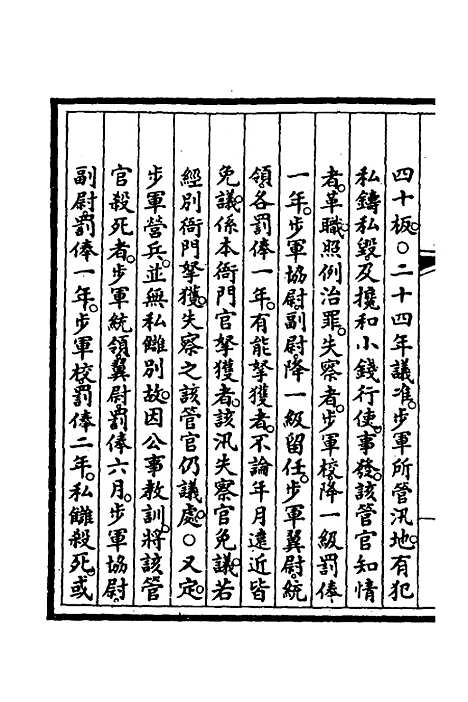 四十板。○二十四年議准。步軍所管汛地。有犯
私鑄私毀。及攙和小錢行使。事發。該管官知情
者。革職。照例治罪。失察者。步軍校。降一級罰俸
一年。步軍協尉。副尉。降一級留任。步軍翼尉。統
領。各罰俸一年。有能拏獲者。不論年月遠近。皆
免議。係本衙門官拏獲者。該汛失察官免議。若
經別衙門拏獲。失察之該管官仍議處。○又定。
步軍營兵。並無私讎別故。因公事教訓。將該管
官殺死者。步軍統領。翼尉。罰俸六月。步軍協尉。
副尉。罰俸一年。步軍校。罰俸二年。私讎殺死。或